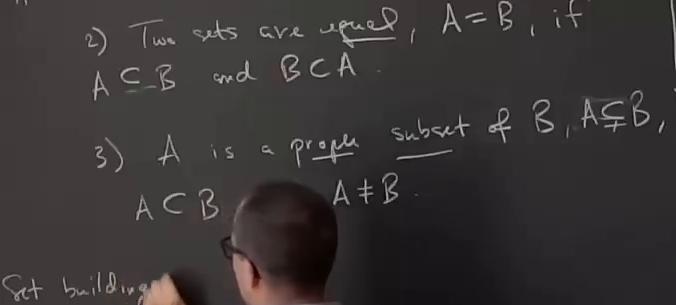 2) Two sets are equal, A = B, if
A ⊆ B and B ⊂ A.
3) A is a proper subset of B, A ⊊ B,
A ⊂ B A ≠ B.
Set building